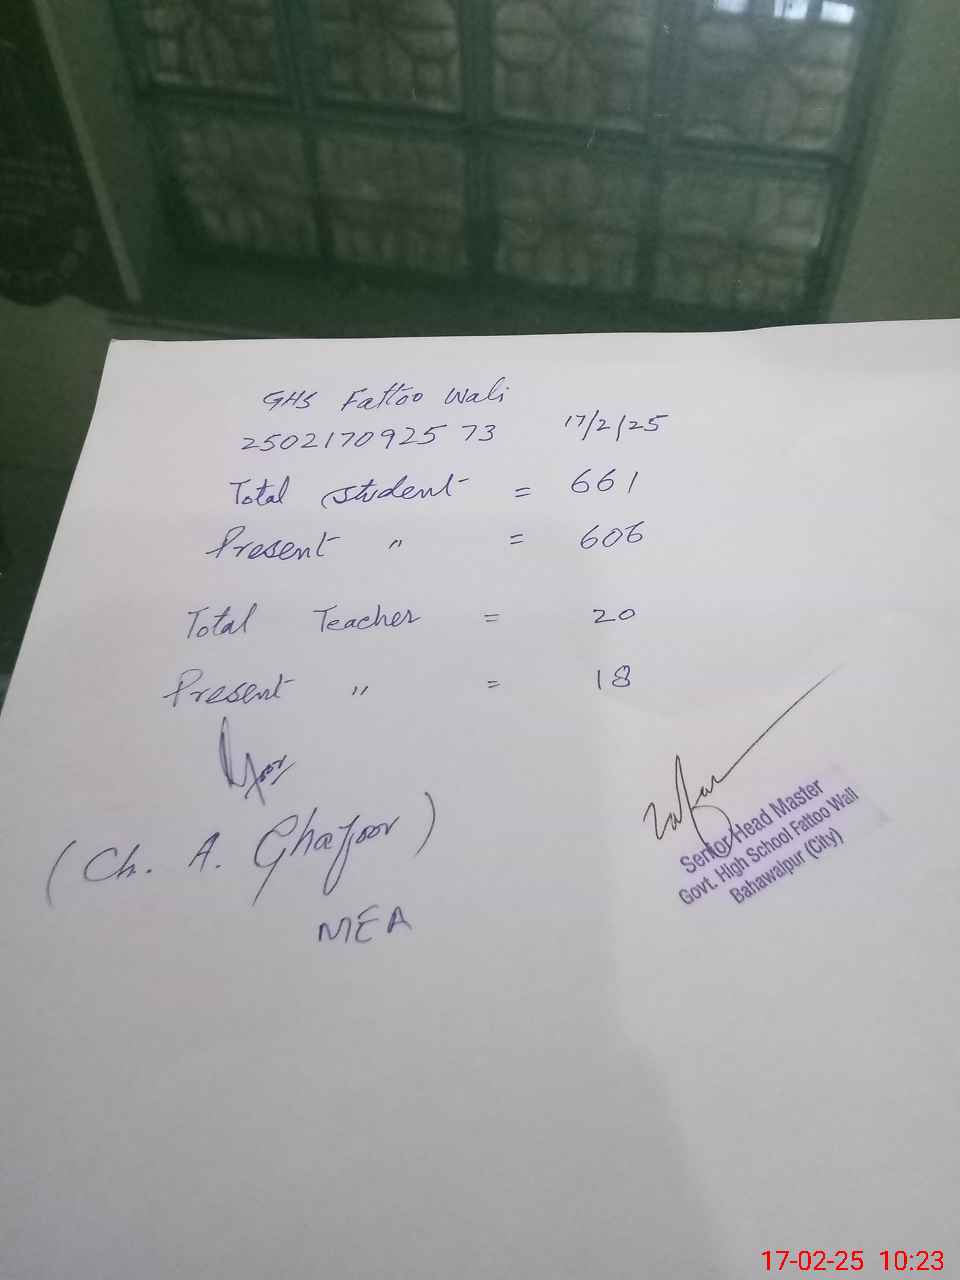 GHS Fattoo Wali
250217092573 17/2/25
Total Student = 661
Present " = 606
Total Teacher = 20
Present " = 18
(Ch. A. Ghafoor)
MEA
Zafar
Senior Head Master
Govt. High School Fattoo Wali
Bahawalpur (City)
17-02-25 10:23